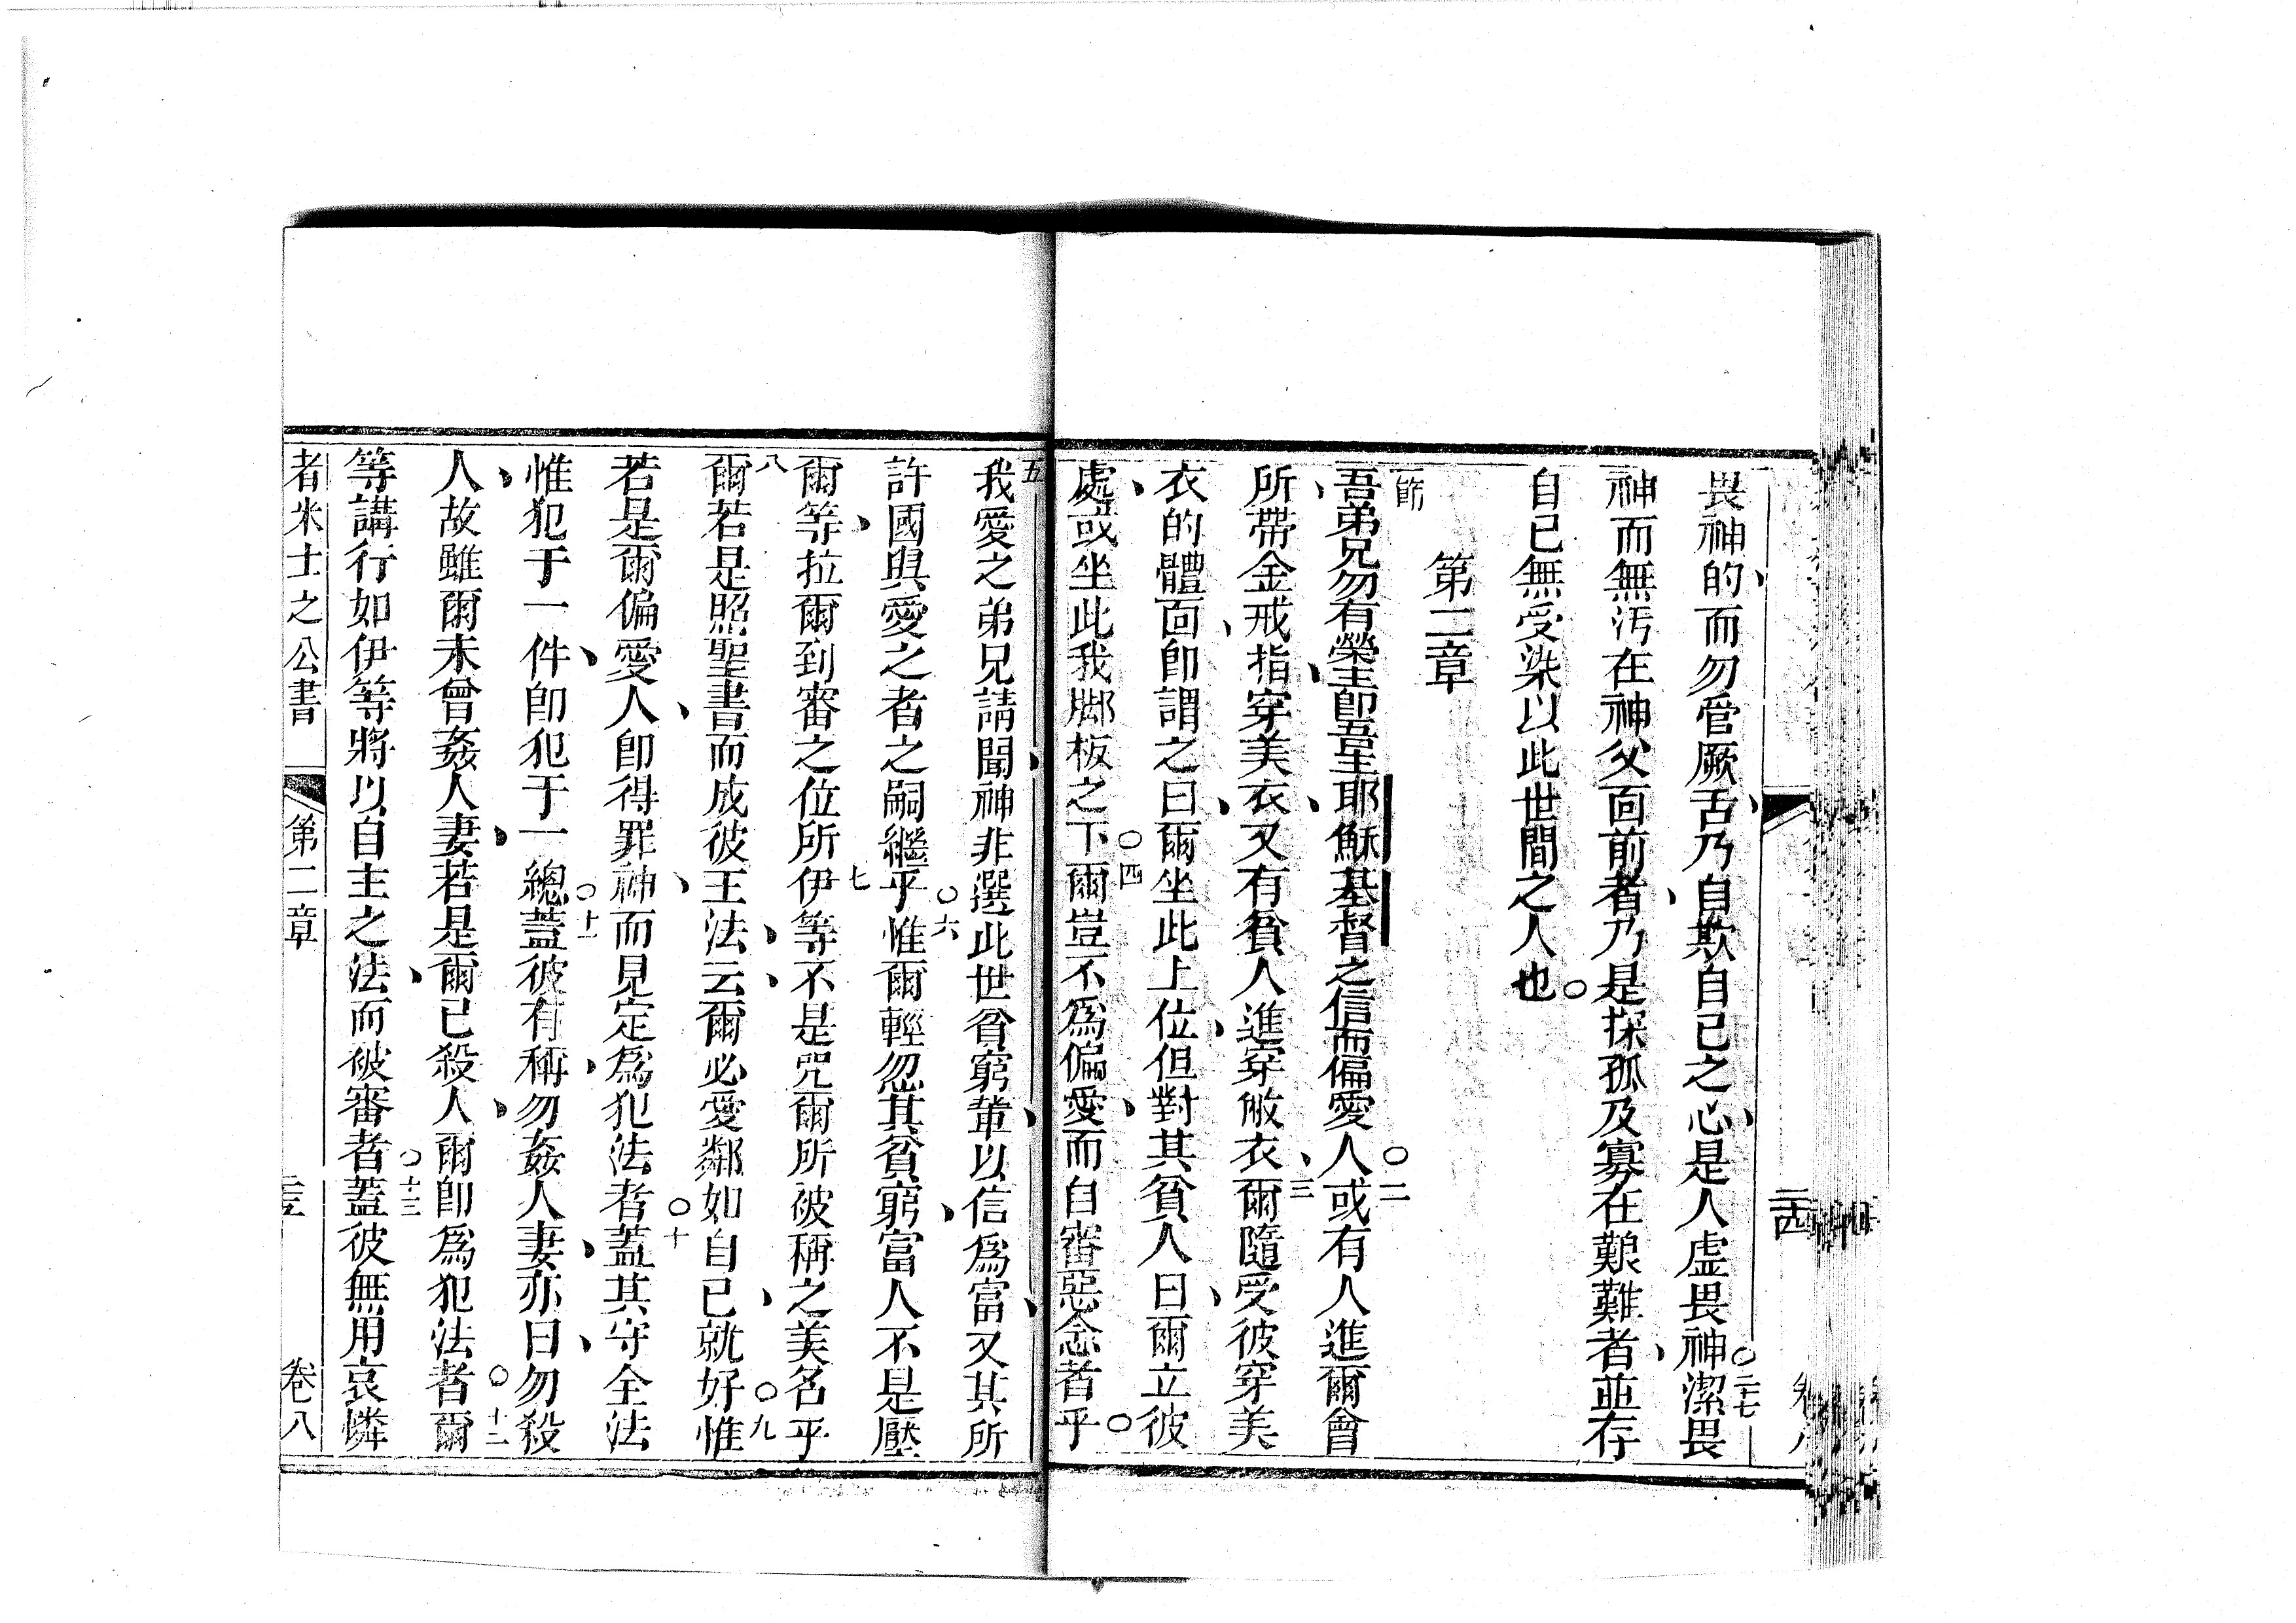 畏神的、而勿管厥舌、乃自欺自己之心、是人虛畏神○二十七潔畏
神而無汚在神父面前者、乃是探孤及寡在艱難者、並存
自己無受染以此世間之人也○
第二章
一節吾弟兄勿有榮主、卽吾主耶穌基督之信而偏愛人○二或有人進爾會
所、帶金戒指、穿美衣、又有貧人進穿敝衣、三爾隨受彼穿美
衣的體面、卽謂之曰、爾坐此上位、但對其貧人曰、爾立彼
處、或坐此我脚板之下○四爾豈不爲偏愛、而自審惡念者乎○
五我愛之弟兄請聞、神非選此世貧窮輩、以信爲富、又其所
許國與愛之者之嗣繼乎○六惟爾輕忽其貧窮、富人不是壓
爾等、拉爾到審之位所七伊等不是咒爾所被稱之美名乎
八爾若是照聖書而成彼王法、云、爾必愛鄰如自己、就好○九惟
若是爾偏愛人、卽得罪神、而見定爲犯法者○十蓋其守全法
惟犯于一件、卽犯于一總○十一蓋彼有稱、勿姦人妻、亦曰、勿殺
人、故雖爾未曾姦人妻、若是爾已殺人、爾卽爲犯法者○十二爾
等講行如伊等將以自主之法、而被審者○十三蓋彼無用哀憐
者米士之公書 第二章 二十五 卷八